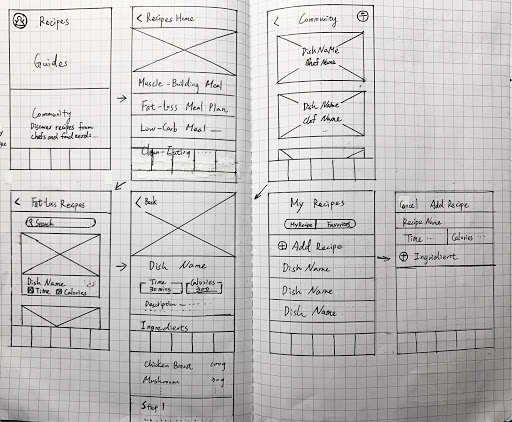 Recipes
Guides
Community
Discover recipes from
chefs and food needs...
< Recipes Home
Muscle-Building Meal
Fat-Loss Meal Plan
Low-Carb Meal
Clean-Eating
< Community
Dish Name
Chef Name
Dish Name
Chef Name
< Fat-Loss Recipes
Search
Dish Name
Time Calories
< Back
Dish Name
Time Calories
30 mins 300
Description
Ingredients
Chicken Breast 200g
Mushroom 30g
Step 1
My Recipes
My Recipe Favorites
Add Recipe
Dish Name
Dish Name
Dish Name
Cancel Add Recipe
Recipe Name
Time ... Calories ...
Ingredient